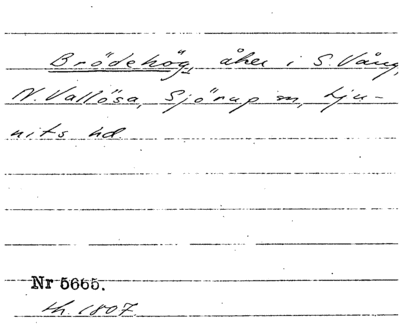 Brödehög, åker i S. Vång,
N. Vallösa, Sjörup sn, Lju-
nits hd
Nr 5665.
1807